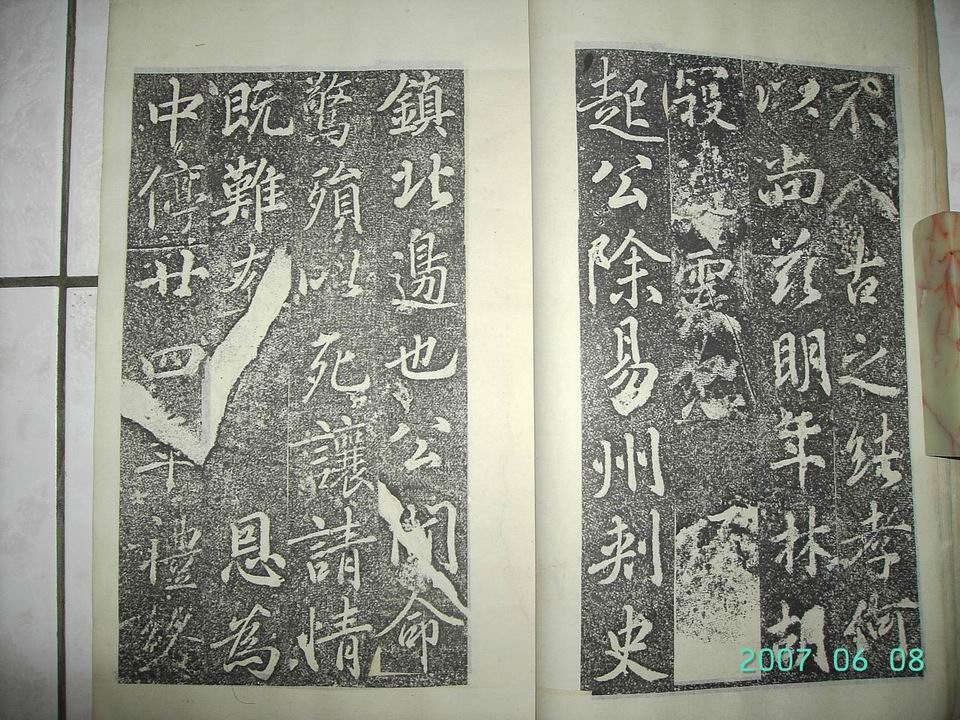 不入古之純孝何
以尚茲明年林胡
寇
起公除易州刺史
鎮北邊也公聞命
驚殞以死讓請情
既難恩為
中停廿四年禮終
2007 06 08